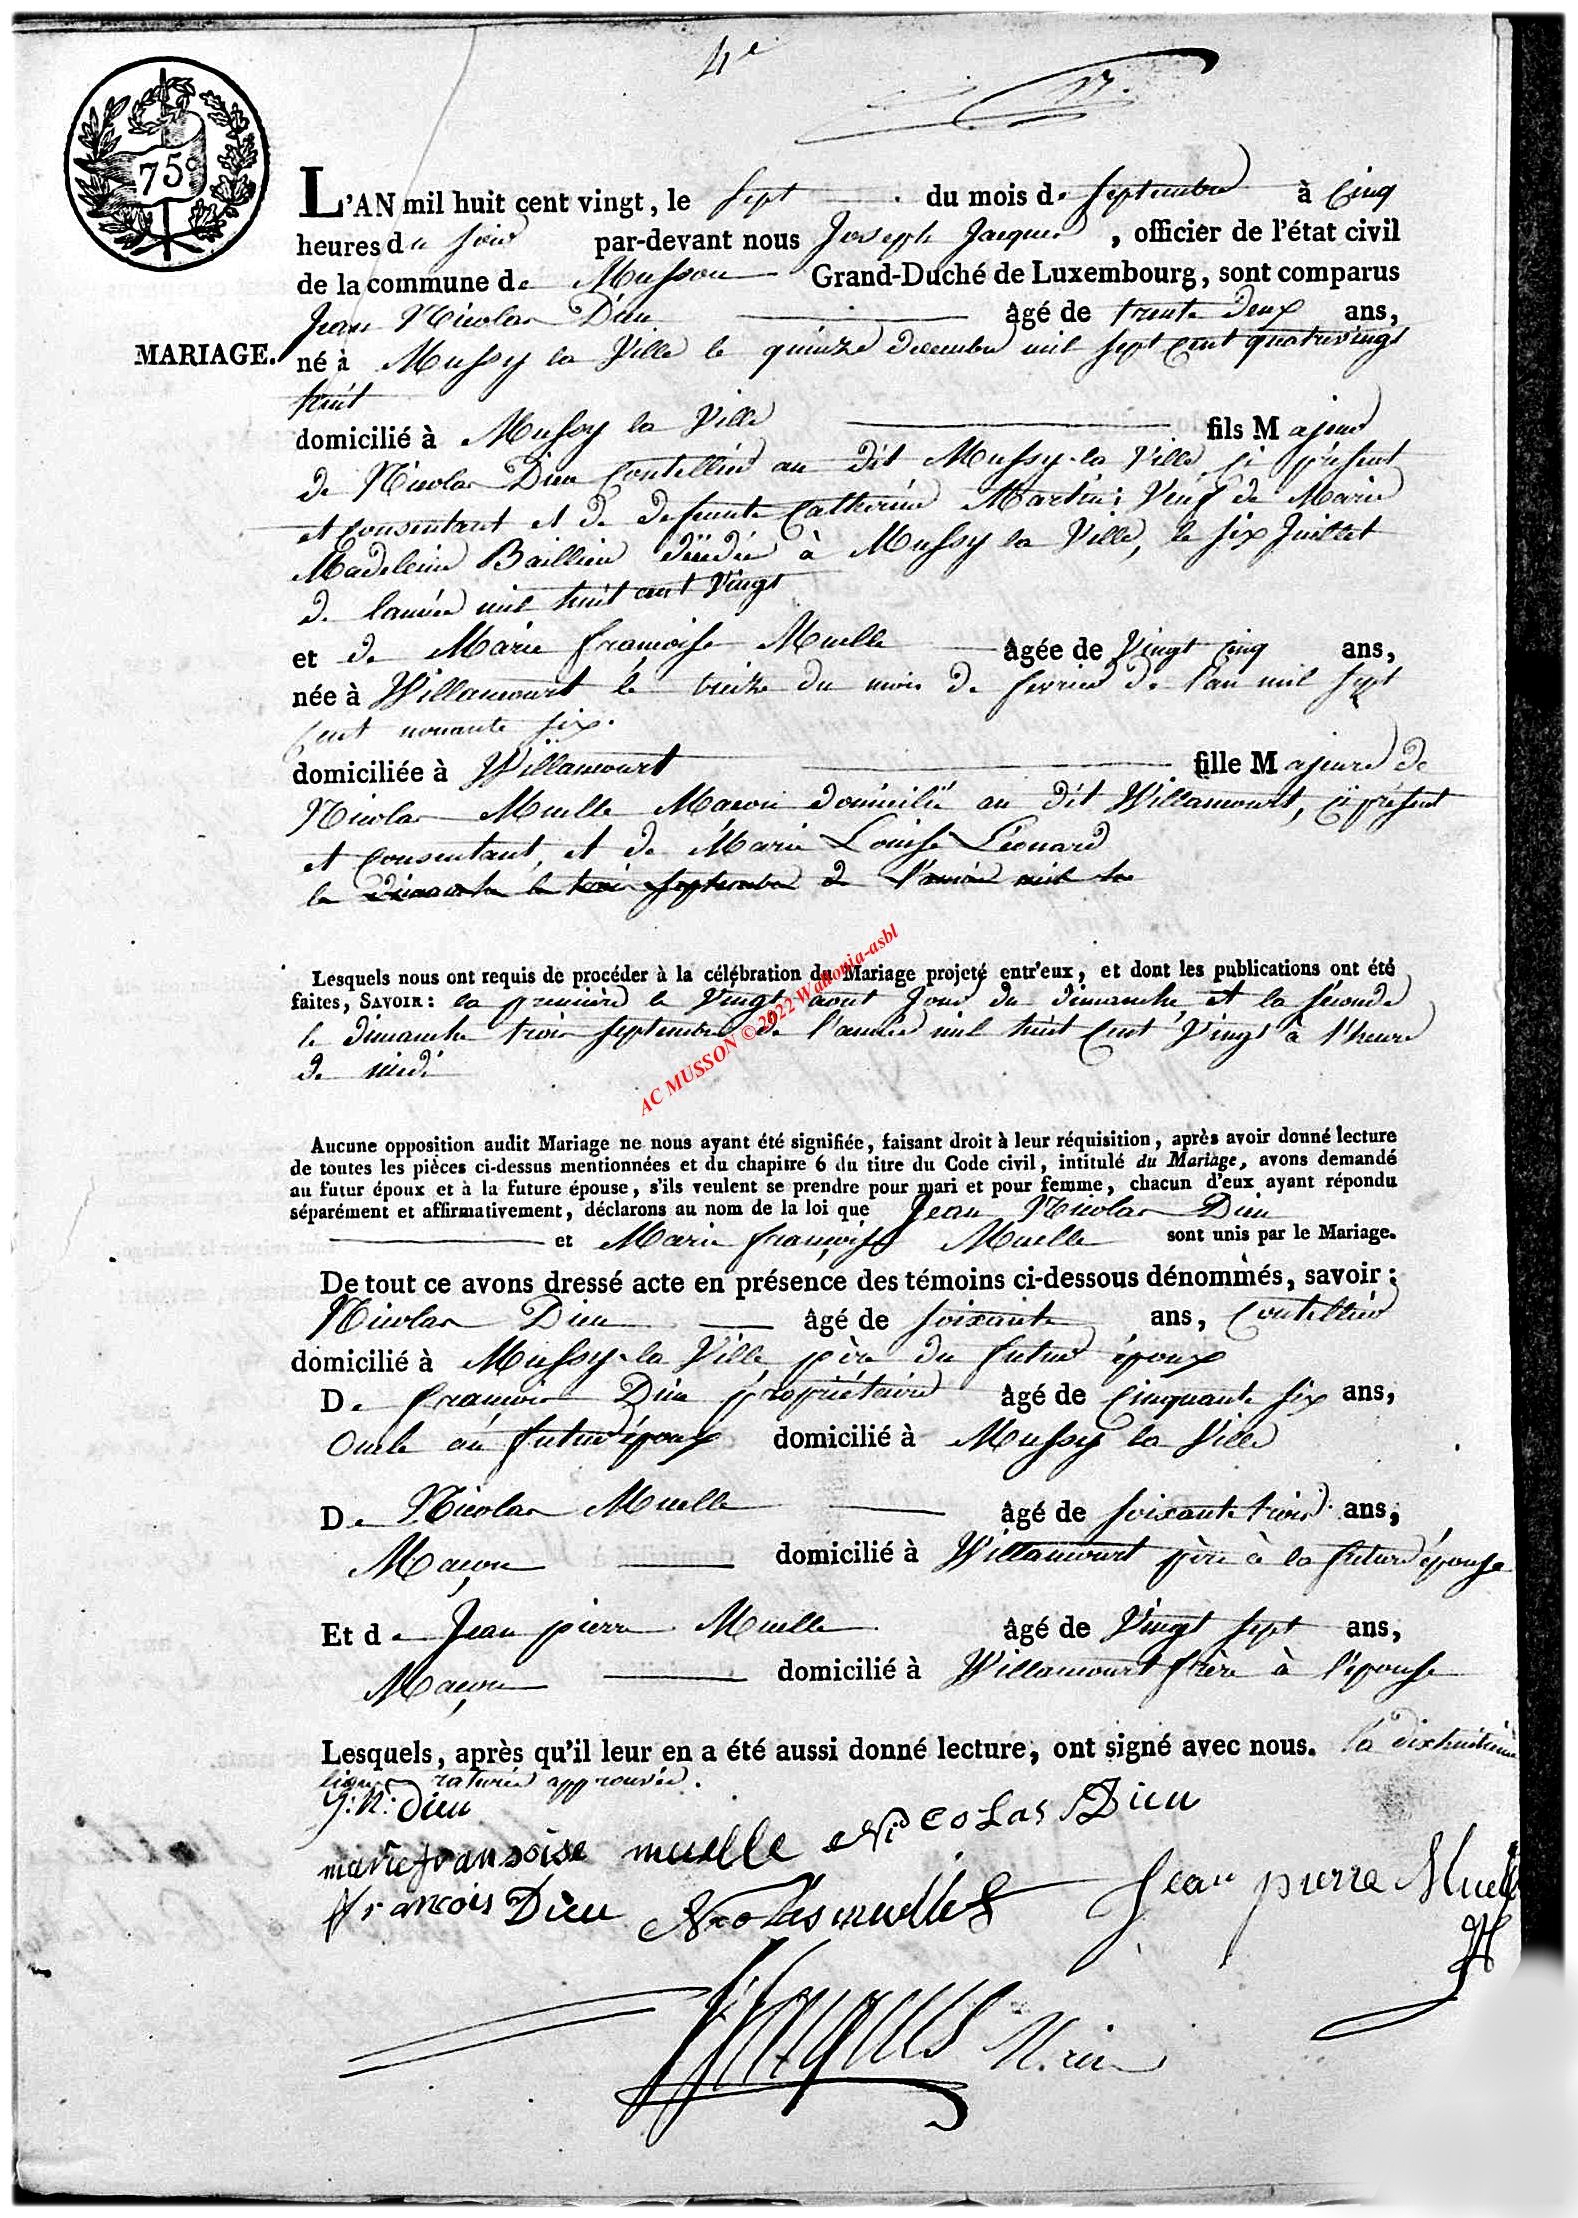 4e
75c
L'AN mil huit cent vingt, le sept du mois de septembre à Cinq
heures du soir par-devant nous Joseph Jacques, officier de l'état civil
de la commune de Musson Grand-Duché de Luxembourg, sont comparus
Jean Nicolas Dieu âgé de trente deux ans,
MARIAGE.
né à Mussy la Ville le quinze decembre mil sept Cent quatrevingt
huit
domicilié à Mussy la Ville fils Majeur
de Nicolas Dieu Coutellier au dit Mussy-la Ville ci présent
et Consentant et de defeunte Catherine Martin; Veuf de Marie
Madeleine Baillieu décédée à Mussy la Ville, le six Juillet
de lannée mil huit cent Vingt
et de Marie françoisse Muelle âgée de Vingt Cinq ans,
née à Willancourt le treize du mois de fevrier de l'an mil sept
Cent nonante six.
domiciliée à Willancourt fille Majeure de
Nicolas Muelle Maçon domicilié au dit Willancourt, ci présent
et Consentant, et de Marie Louise Léonard
le Dimanche le trois septembre de l'année mil
Lesquels nous ont requis de procéder à la célébration du Mariage projeté entr'eux, et dont les publications ont été
faites, SAVOIR: la première le Vingt aout Jour du dimanche, et la séconde
le dimanche trois septembre de l'année mil huit Cent Vingt à l'heure
de midi
AC MUSSON © 2022 Wallonia-asbl
Aucune opposition audit Mariage ne nous ayant été signifiée, faisant droit à leur réquisition, après avoir donné lecture
de toutes les pièces ci-dessus mentionnées et du chapitre 6 du titre du Code civil, intitulé du Mariage, avons demandé
au futur époux et à la future épouse, s'ils veulent se prendre pour mari et pour femme, chacun d'eux ayant répondu
séparément et affirmativement, déclarons au nom de la loi que Jean Nicolas Dieu
et Marie françoisse Muelle sont unis par le Mariage.
De tout ce avons dressé acte en présence des témoins ci-dessous dénommés, savoir:
Nicolas Dieu âgé de soixante ans, Coutellier
domicilié à Mussy-la Ville père du futur époux
De françois Dieu propriétaire âgé de Cinquante six ans,
Oncle au futur époux domicilié à Mussy la Ville
De Nicolas Muelle âgé de soixante trois ans,
Maçon domicilié à Willancourt père à la future épouse
Et de Jean pierre Muelle âgé de Vingt sept ans,
Maçon domicilié à Willancourt frère à l'épouse
Lesquels, après qu'il leur en a été aussi donné lecture, ont signé avec nous. la dixhuitième
ligne raturée approuvée.
J: N: Dieu
marie fransoise muelle Nicolas Dieu
françois Dieu Nicolas muelle Jean pierre Muelle
J Jacques